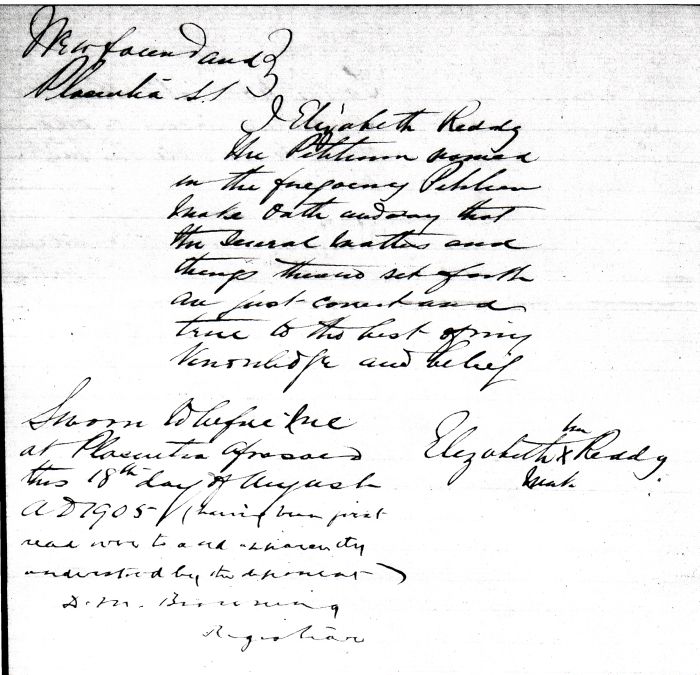 Newfoundland }
Placentia S.S
I Elizabeth Reddy
the Petitioner named
in the foregoing Petition
make Oath and say that
the several matters and
things therein set forth
are just correct and
true to the best of my
knowledge and belief
Sworn to before me
at Placentia aforesaid
this 18th day of August
AD 1905 (having been first
read over to and apparently
understood by the deponent)
D. M. Browning
Registrar
her
Elizabeth X Reddy
mark